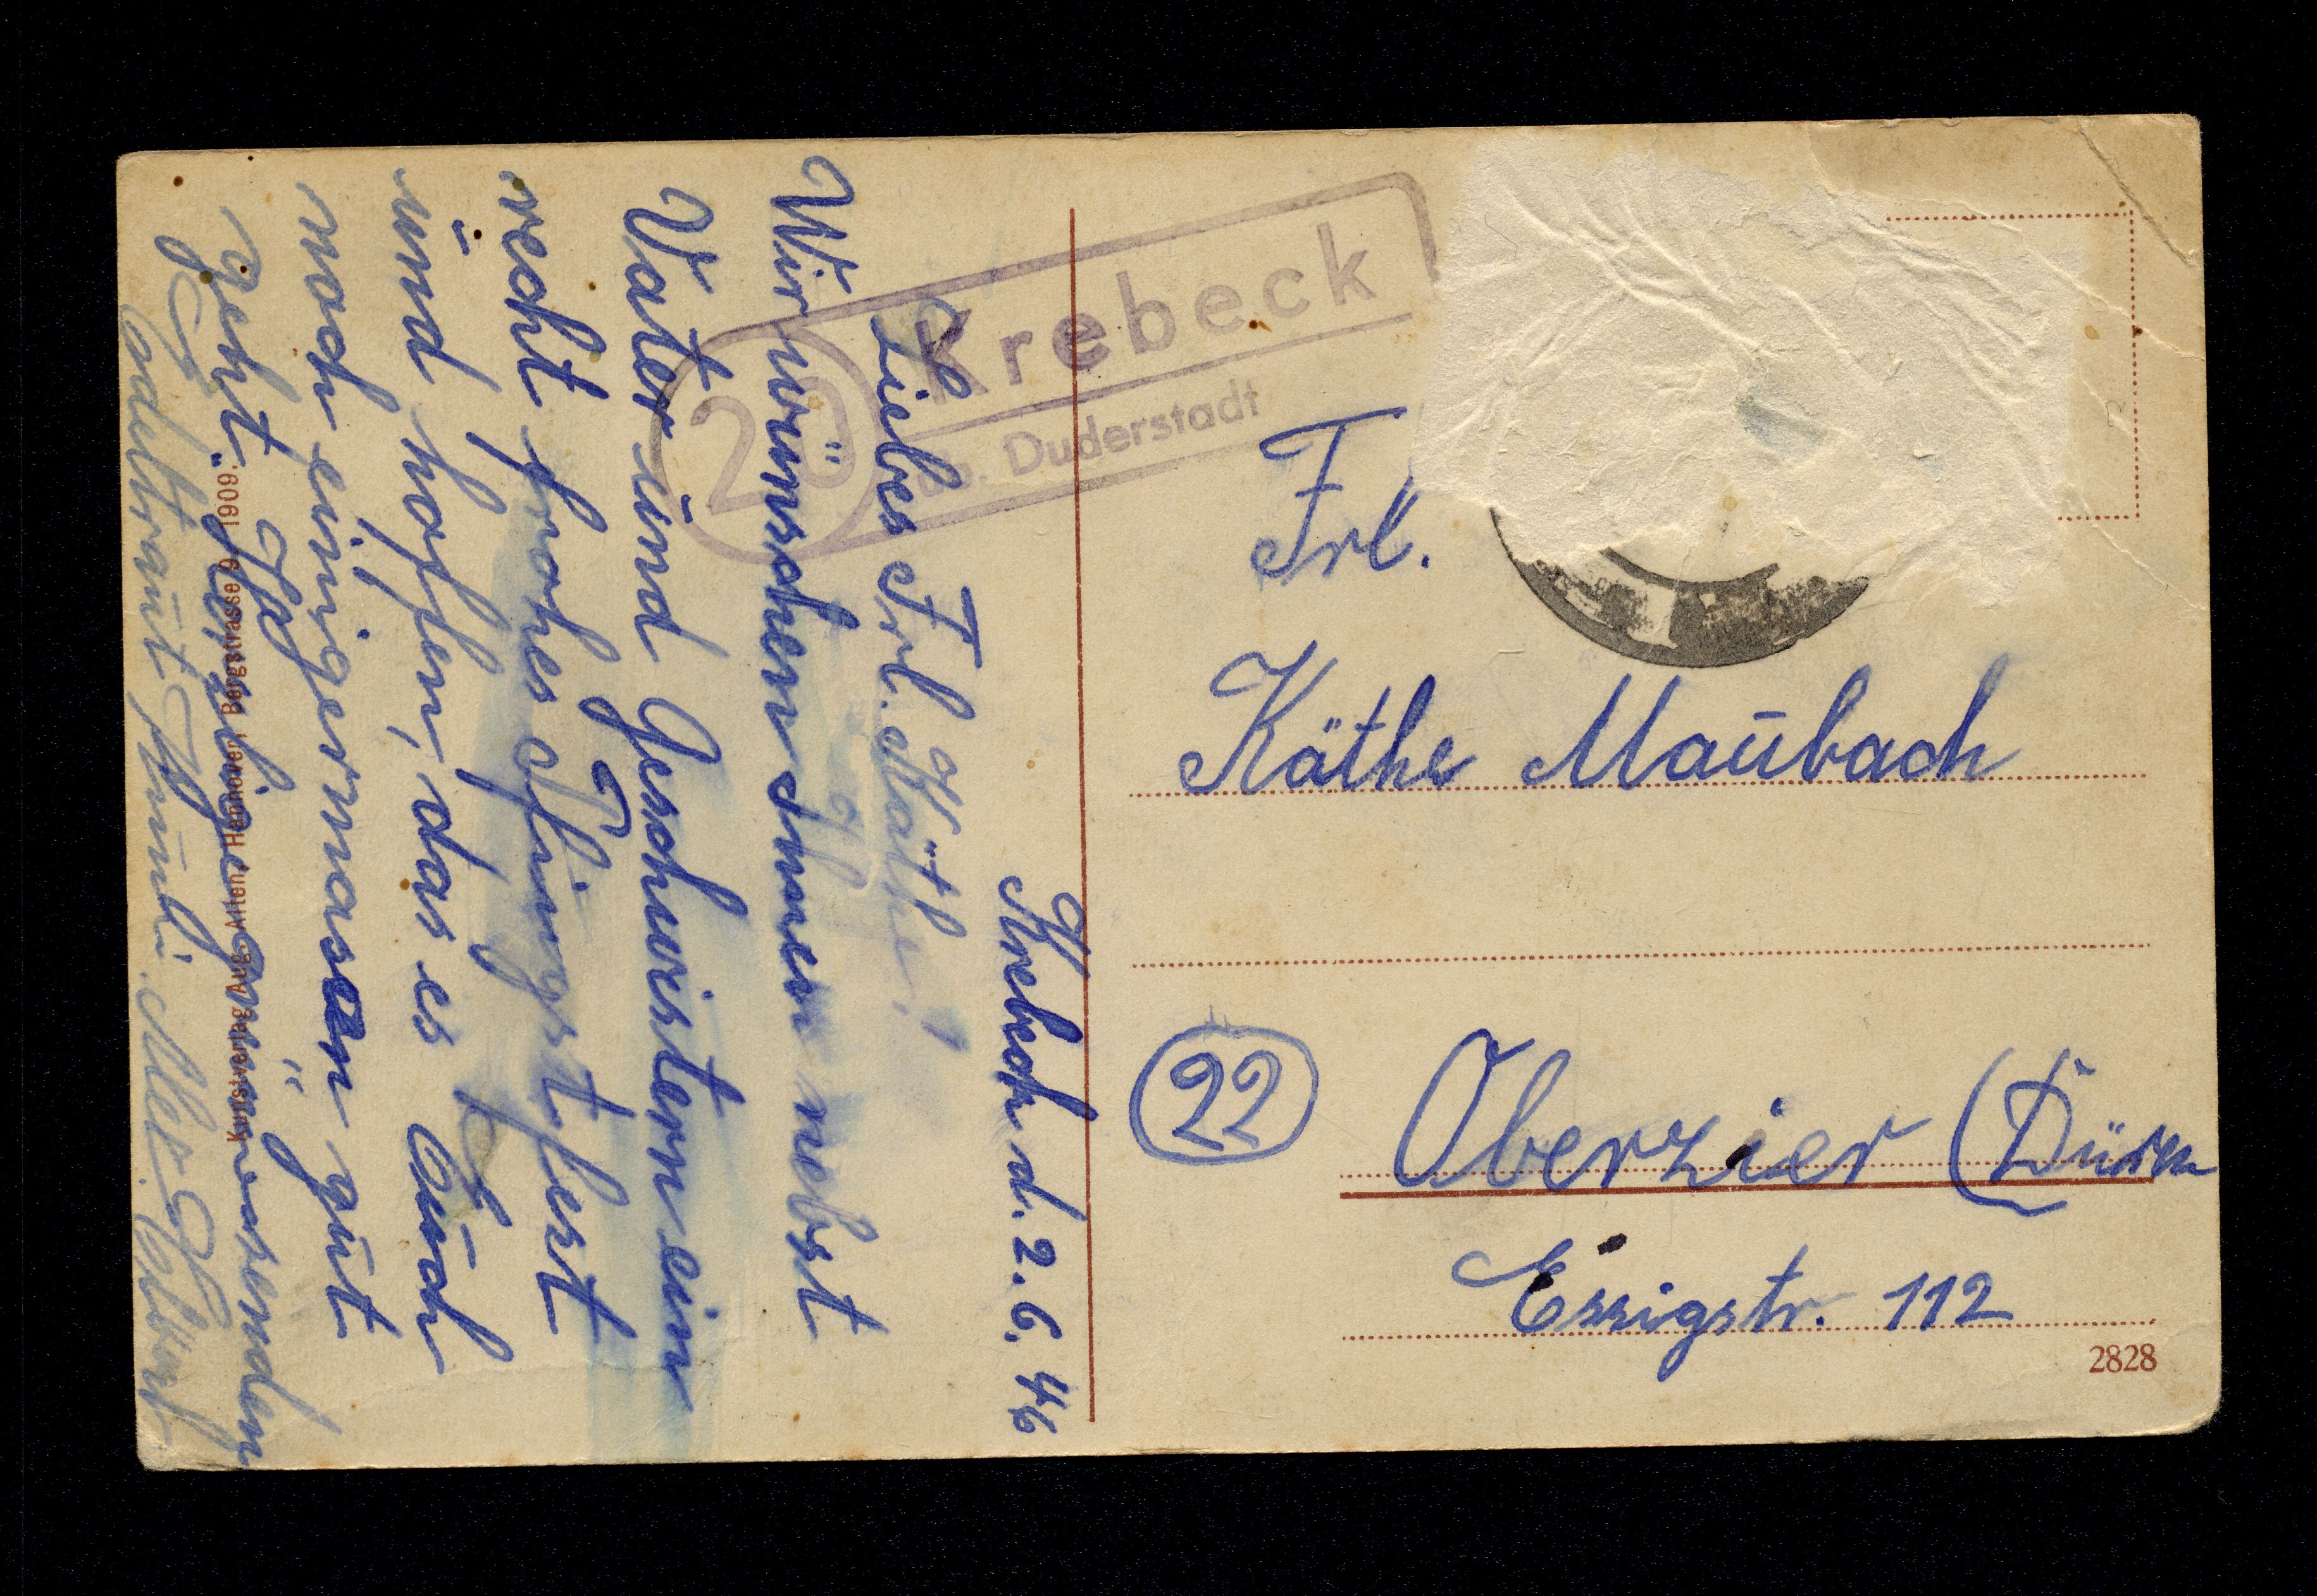 Krebeck d. 2. 6. 46
Liebes Frl. Käthe!
Wir wünschen Ihnen nebst
Vater und Geschwistern ein
recht frohes Pfingstfest
und hoffen, das es Euch
noch einigermasen gut
geht. Herzliche Grüße senden
Kunstverlag Aug. Alten, Hannover, Bergstrasse 9. 1909.
20
Krebeck
üb. Duderstadt
Frl.
Käthe Maubach
22 Oberzier (Düren
Essigstr. 112
2828